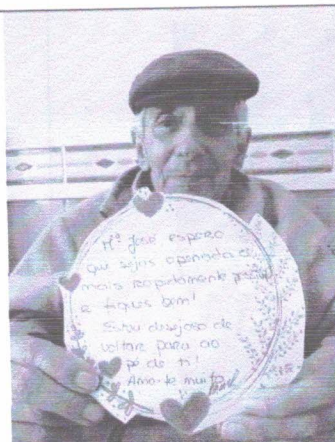 Mª José espero
que sejas operada o
mais rapidamente possível
e fiques bem!
Estou desejoso de
voltar para ao
pé de ti!
Amo-te muito